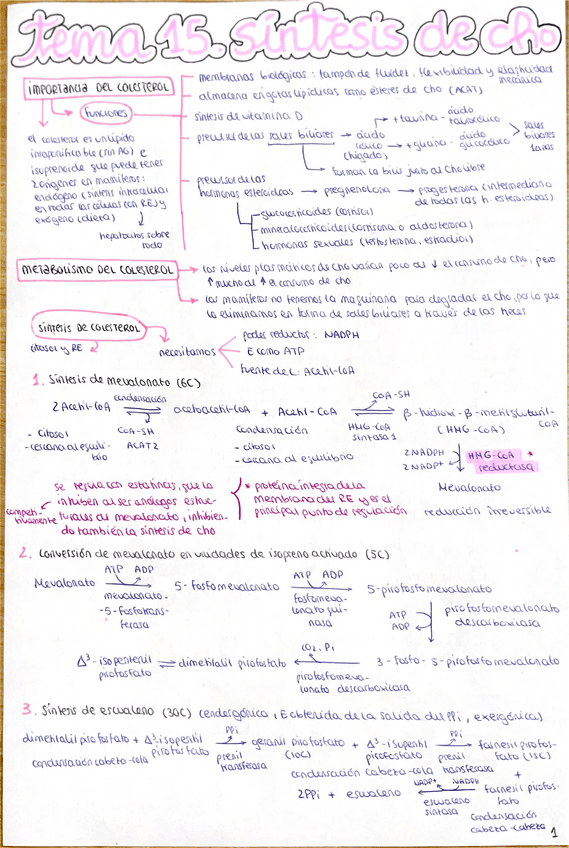 tema 15. síntesis de cho
IMPORTANCIA DEL COLESTEROL
funciones
membranas biológicas: tampón de fluidez, flexibilidad y elasticidad
mecánica
almacena en gotas lipídicas como ésteres de cho (ACAT)
síntesis de vitamina D
precursor de las sales biliares → ácido
cólico
(hígado)
+ taurina - ácido
taurocólico
+ glicina - ácido
glucocólico
sales
biliares
1arias
forman la bilis junto al cho libre
el colesterol es un lípido
insaponificable (sin AG) e
isoprenoide que puede tener
2 orígenes en mamíferos:
endógeno (síntesis intracelular
en todas las células con RE) y
exógeno (dieta)
hepatocitos sobre
todo
precursor de las
hormonas esteroideas → pregnenolona → progesterona (intermediario
de todas las h. esteroideas)
glucocorticoides (cortisol)
mineralocorticoides (corticosterona o aldosterona)
hormonas sexuales (testosterona, estradiol)
METABOLISMO DEL COLESTEROL
los niveles plasmáticos de cho varían poco al ↓ el consumo de cho, pero
↑ mucho al ↑ el consumo de cho
los mamíferos no tenemos la maquinaria para degradar el cho, por lo que
lo eliminamos en forma de sales biliares a través de las heces
SÍNTESIS DE COLESTEROL
citosol y RE
necesitamos
poder reductor: NADPH
E como ATP
fuente de C: Acetil-CoA
1. Síntesis de mevalonato (6C)
2 Acetil-CoA
condensación
CoA-SH
ACAT2
acetoacetil-CoA + Acetil-CoA
CoA-SH
HMG-CoA
sintasa 1
β-hidroxi-β-metilglutaril-
CoA
(HMG-CoA)
- citosol
- cercana al equili-
brio
condensación
- citosol
- cercana al equilibrio
2 NADPH
2 NADP+
HMG-CoA *
reductasa
Mevalonato
reducción irreversible
se regula con estatinas, que la
inhiben al ser análogos estruc-
competi-
tivamente
turales al mevalonato, inhibien-
do también la síntesis de cho
* proteína integral de la
membrana del RE y es el
principal punto de regulación
2. Conversión de mevalonato en unidades de isopreno activado (5C)
Mevalonato
ATP ADP
mevalonato-
-5-fosfotrans-
ferasa
5-fosfomevalonato
ATP ADP
fosfomeva-
lonato qui-
nasa
5-pirofosfomevalonato
ATP
ADP
pirofosfomevalonato
descarboxilasa
Δ³-isopentenil
pirofosfato
⇌ dimetilalil pirofosfato
CO2, Pi
pirofosfomeva-
lonato descarboxilasa
3-fosfo-5-pirofosfomevalonato
3. Síntesis de escualeno (30C) (endergónica, E obtenida de la salida del PPi, exergónica)
dimetilalil pirofosfato + Δ³-isopentil
pirofosfato
condensación cabeza-cola
PPi
prenil
transferasa
geranil pirofosfato + Δ³-isopentil
(10C)
pirofosfato
condensación cabeza-cola
PPi
prenil
transferasa
farnesil pirofos-
fato (15C)
+
farnesil pirofos-
fato
condensación
cabeza-cabeza
NADP+ NADPH
escualeno
sintasa
2PPi + escualeno
1